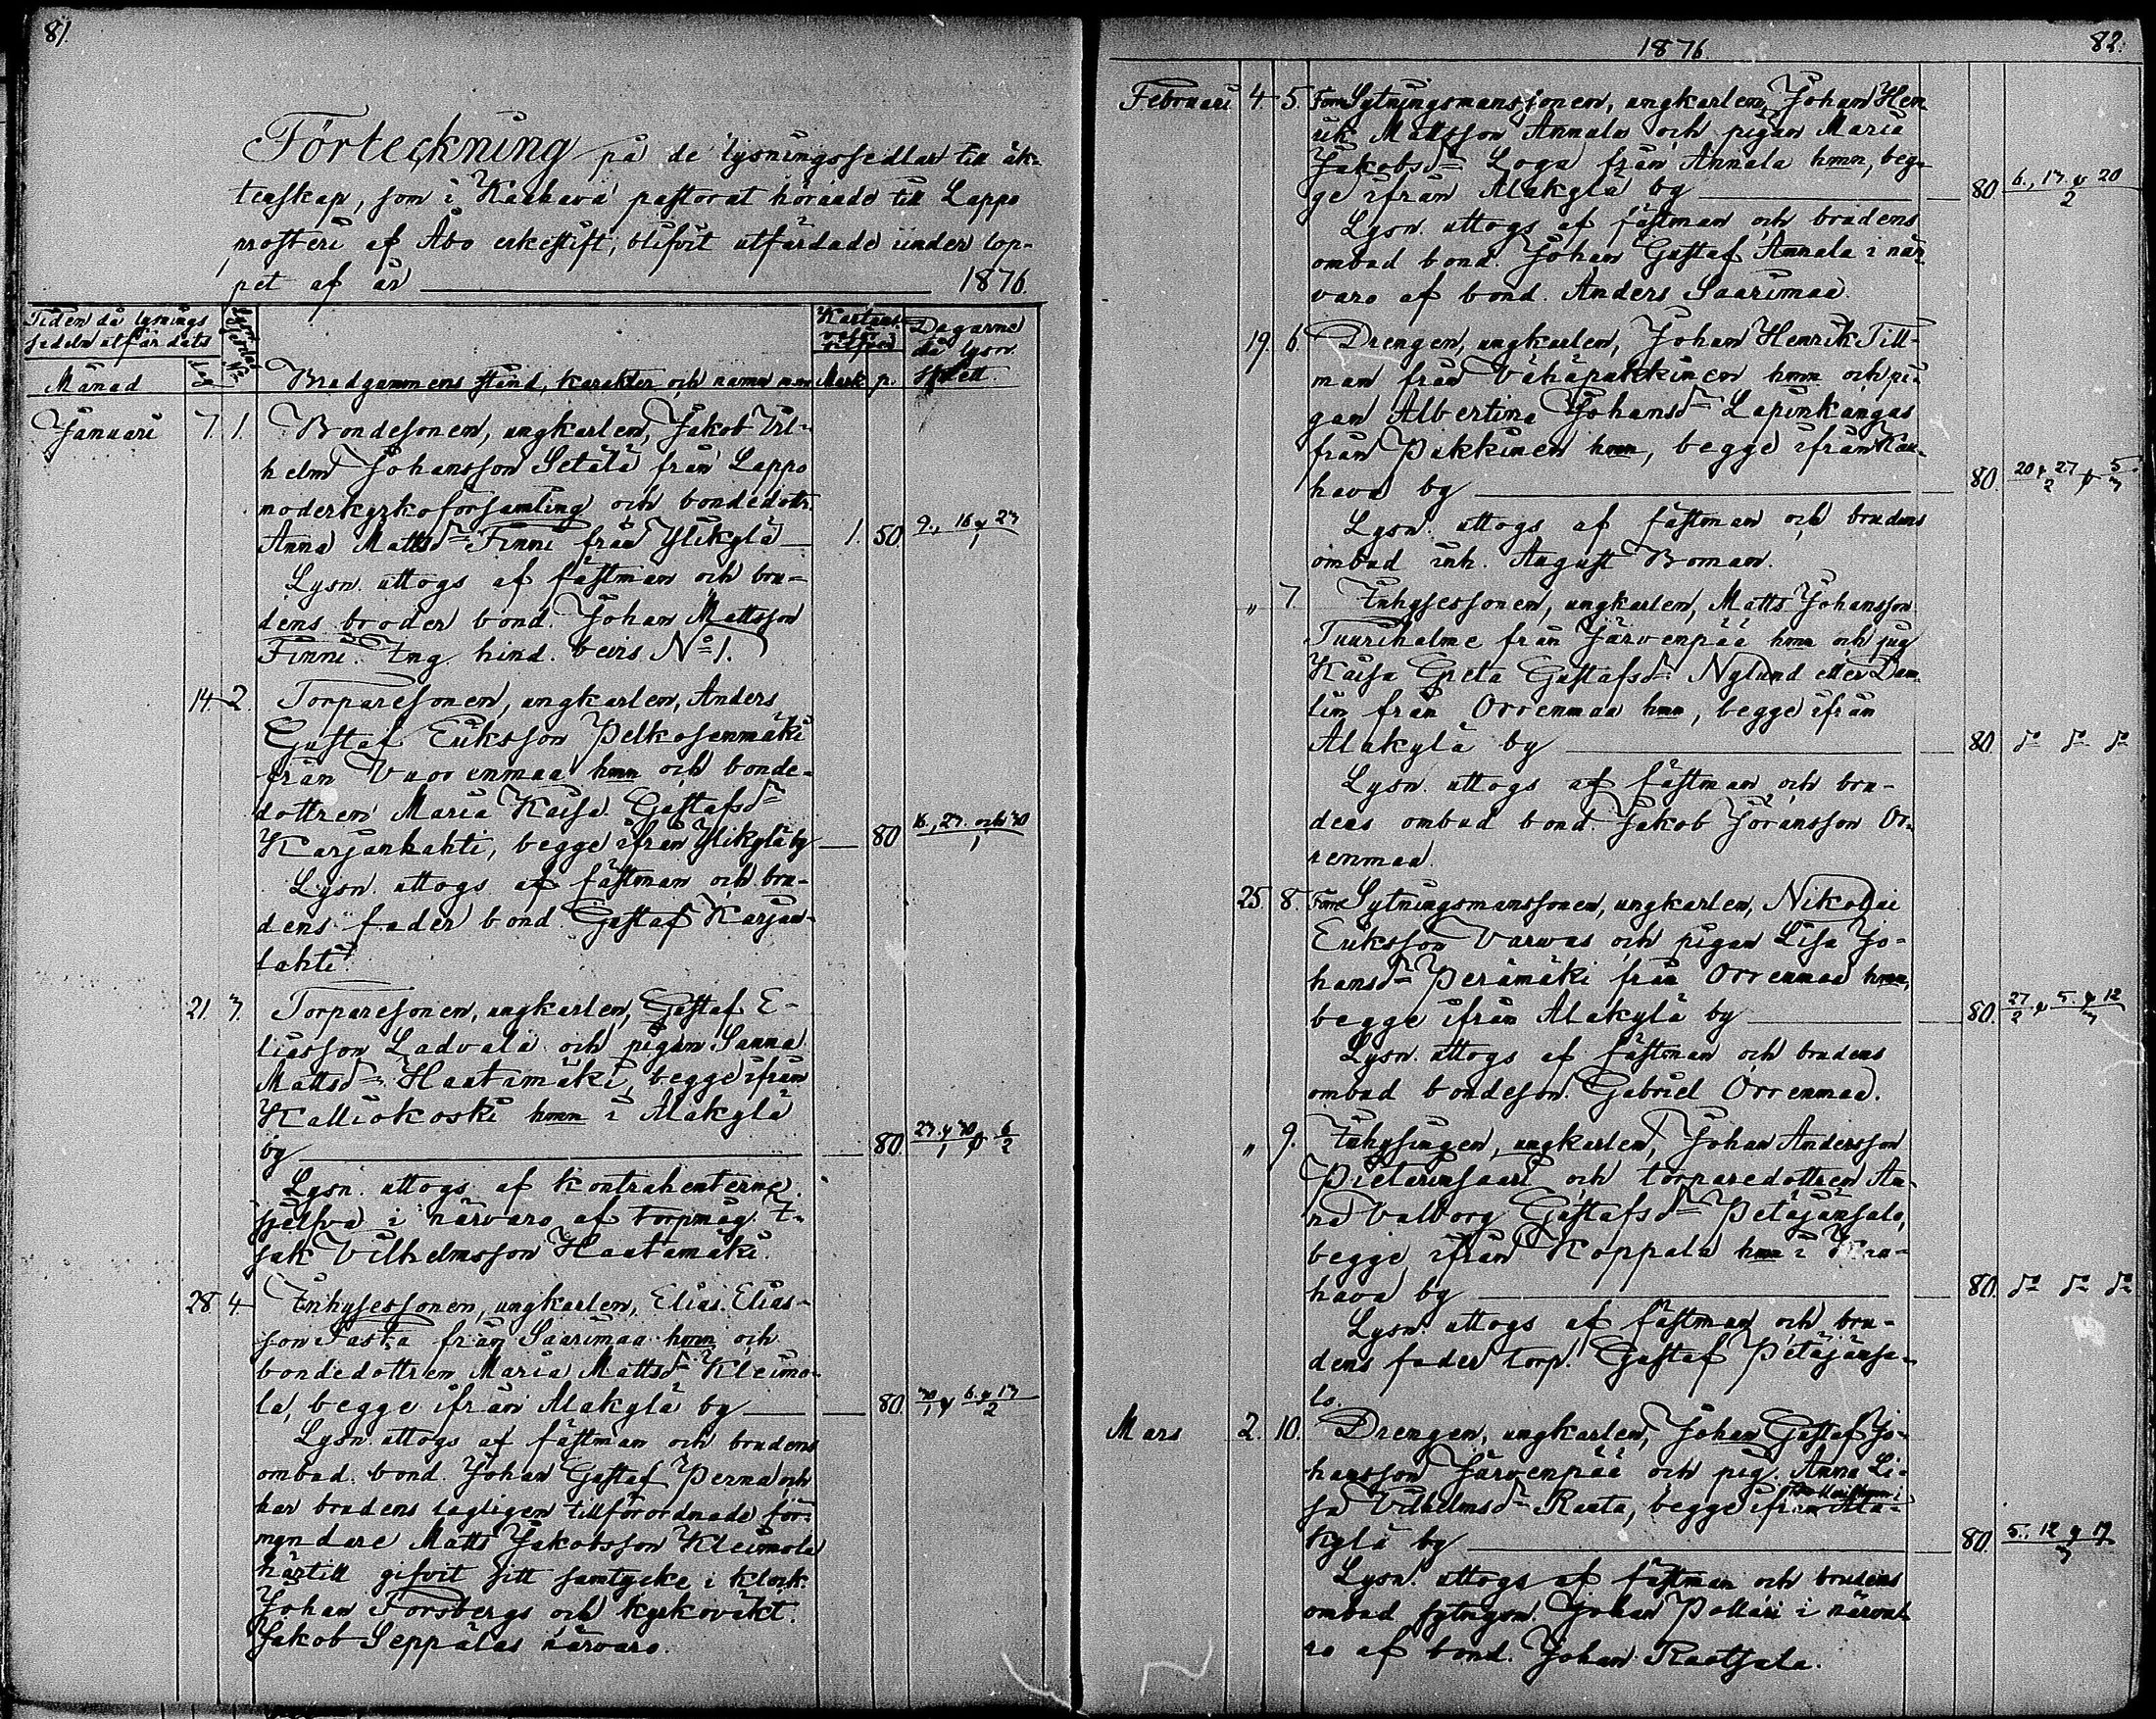 81.
Förteckning på de lysningssedlar till äk-
tenskap, som i Kauhava pastorat hörande till Lappo
prosteri af Åbo erkestift, blifvit utfärdade under lop-
pet af år 1876.
Tiden då lysnings
sedeln utfärdats
Månad dag
Brudgummens stånd, karakter och namn m.m. Mark p.
Dagarne
då lysn.
skett.
Januari 7. 1. Bondesonen, ungkarlen, Jakob Vil-
helm Johansson Setälä från Lappo
moderkyrkoförsamling och bondedottr.
Anna Mattsdr Finni från Ylikylä 1. 50. 9., 16 & 23/1
Lysn. uttogs af fästman och bru-
dens broder bond. Johan Mattsson
Finni. Ing. hind. bevis No 1.
14. 2. Torparesonen, ungkarlen, Anders
Gustaf Eriksson Pelkosenmäki
från Vuorenmaa hmn och bonde-
dottren Maria Kaisa Gustafsdr
Karjanlahti, begge ifrån Ylikylä by 80 16., 23. och 30/1
Lysn. uttogs af fästman och bru-
dens fader bond. Gustaf Karjan-
lahti.
21 3. Torparesonen, ungkarlen, Gustaf E-
liasson Ladvala och pigan Sanna
Mattsdr Haatamäki, begge ifrån
Kalliokoski hmn i Alakylä
by 80. 23. & 30/1 & 6/2
Lysn. uttogs af kontrahenterne
sjelfva i närvaro af torpmåg. I-
sak Vilhelmsson Haatamäki.
28 4. Inhysessonen, ungkarlen, Elias Elias-
son Pasta från Saarimaa hmn och
bondedottren Maria Mattsdr Kleimo-
la, begge ifrån Alakylä by 80. 30/1 & 6. & 13/2
Lysn. uttogs af fästman och brudens
ombud. bond. Johan Gustaf Perna och
har brudens lagligen tillförordnade för-
myndare Matts Jakobsson Kleimola
härtill gifvit sitt samtycke i klock.
Johan Forsbergs och kyrkoväkt.
Jakob Seppälas närvaro.
1876. 82.
Februari 4. 5. Form Sytningsmanssonen, ungkarlen, Johan Hen
rik Mattsson Annala och pigan Maria
Jakobsdr Loga från Annala hmn, beg-
ge ifrån Alakylä by 80. 6., 13 & 20/2
Lysn. uttogs af fästman och brudens
ombud bond. Johan Gustaf Annala i när
varo af bond. Anders Saarimaa.
19. 6. Drengen, ungkarlen, Johan Henrik Till-
man från Vähäpukkinen hmn och pi-
gan Albertina Johansdr Lapinkangas
från Pukkinen hmn, begge ifrån Kau-
hava by 80. 20 & 27/2 & 5/3
Lysn. uttogs af fästman och brudens
ombud inh. August Boman.
" 7. Inhysessonen, ungkarlen, Matts Johansson
Tuurihalme från Järvenpää hmn och pig
Kaisa Greta Gustafsdr Nylund eller Dam
lin från Orrenmaa hmn, begge ifrån
Alakylä by 80. do do do
Lysn. uttogs af fästman och bru-
dens ombud bond. Jakob Göransson Or-
renmaa.
25. 8. Form Sytningsmanssonen, ungkarlen, Nikolai
Eriksson Varwas och pigan Lisa Jo-
hansdr Perämäki från Orrenmaa hmn,
begge ifrån Alakylä by 80. 27/2 & 5. & 12/3
Lysn. uttogs af fästman och brudens
ombud bondeson. Gabriel Orrenmaa.
" 9. Inhysingen, ungkarlen, Johan Andersson
Pietarinsaari och torparedottren An-
na Valborg Gustafsdr Petäjänsalo,
begge ifrån Koppala hmn i Kau-
hava by 80. do do do
Lysn. uttogs af fästman och bru-
dens fader torp. Gustaf Petäjänsa-
lo.
Mars 2. 10. Drengen, ungkarlen, Johan Gustaf Jo-
hansson Järvenpää och pig. Anna Li-
sa Vilhelmsdr Rauta, begge ifrån Ala-
kylä by 80. 5., 12 & 19/3
Lysn. uttogs af fästman och brudens
ombud sytngsm. Johan Pollari i närva-
ro af bond. Johan Raatsala.